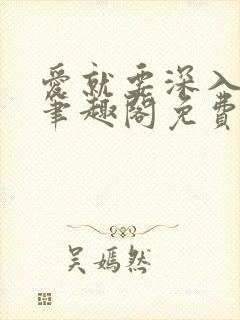 愛就要深入
筆趣閣免費
吴嫣然